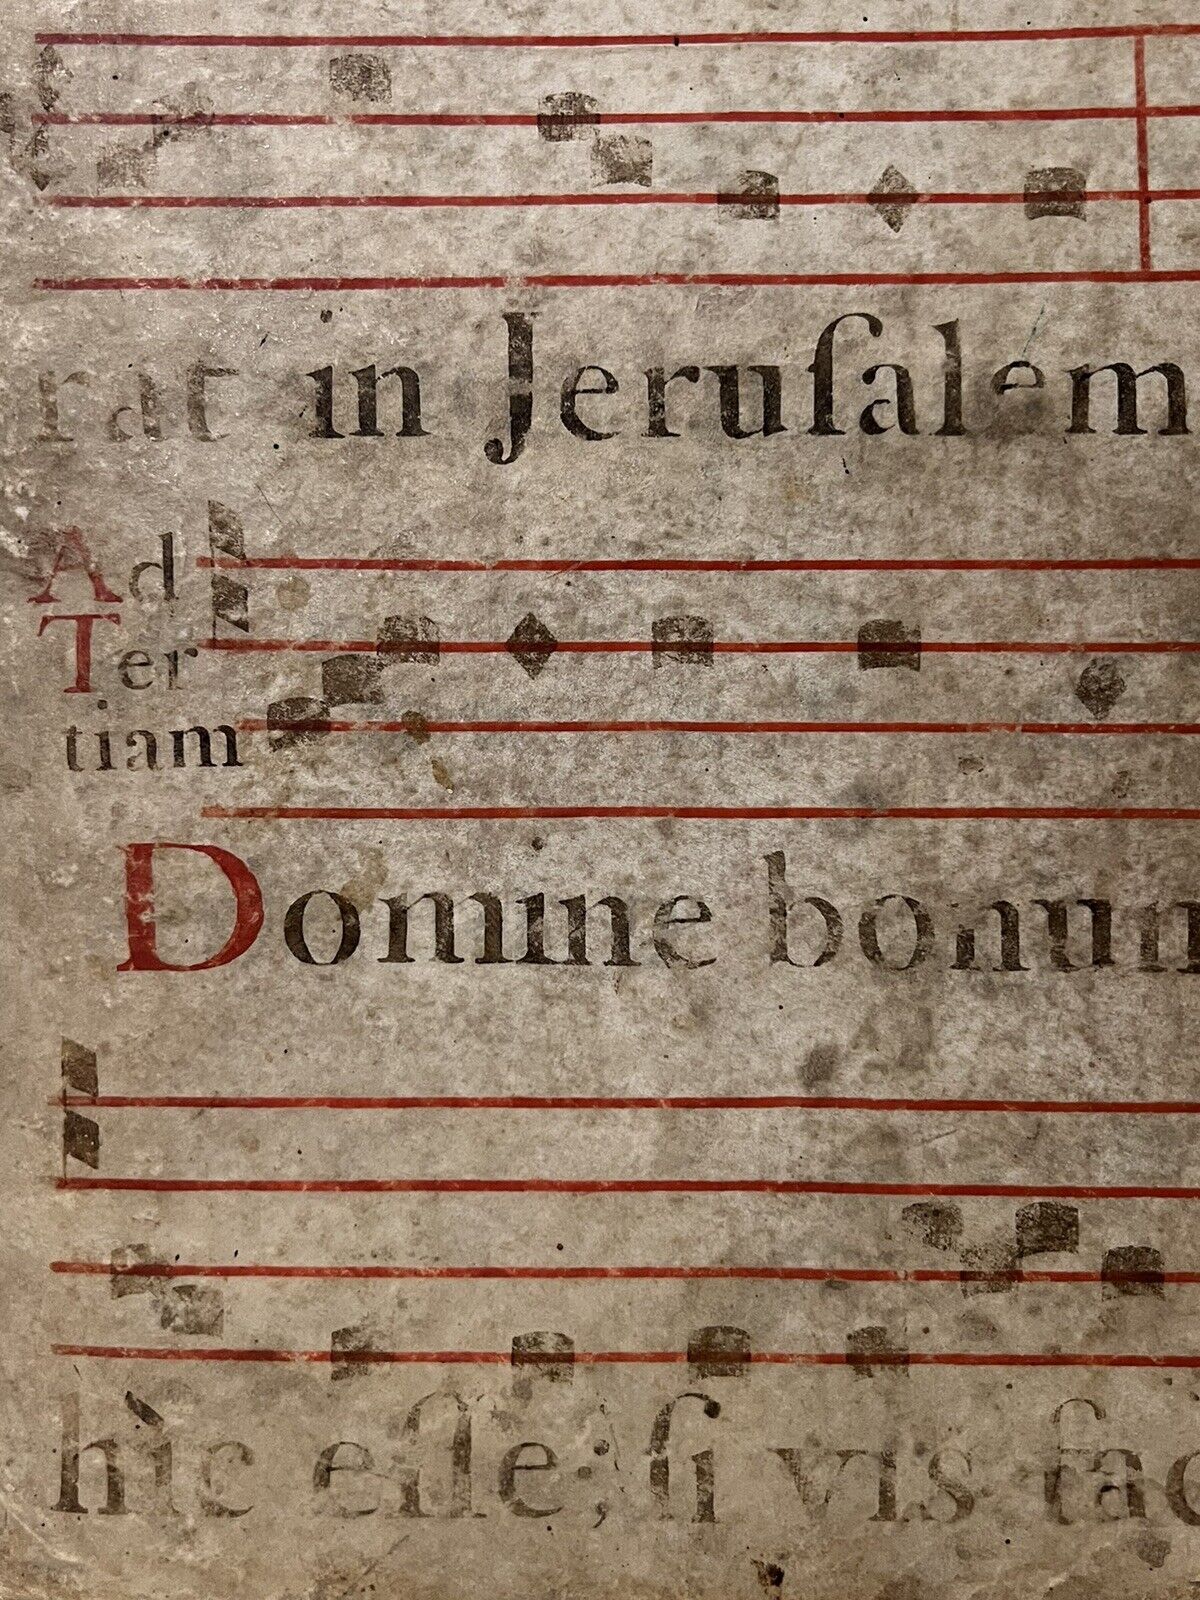 rat in Jeruſalém
Ad
Ter
tiam
Domine bonum
hìc eſſe; ſi vis fac